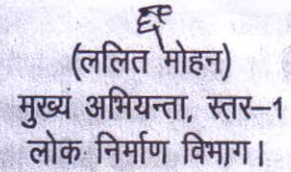 (ललित मोहन)
मुख्य अभियन्ता, स्तर–1
लोक निर्माण विभाग।